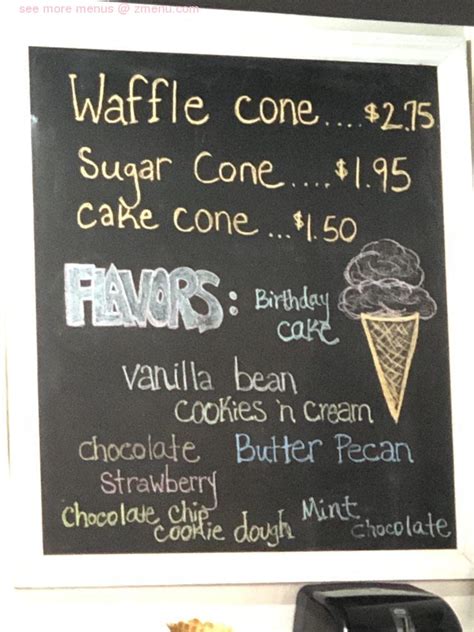 see more menus @ zmenu.com
Waffle cone....$2.75
Sugar Cone....$1.95
cake cone ...$1.50
FLAVORS: Birthday
cake
vanilla bean
cookies 'n cream
chocolate Butter Pecan
Strawberry
Chocolate chip Mint
cookie dough chocolate